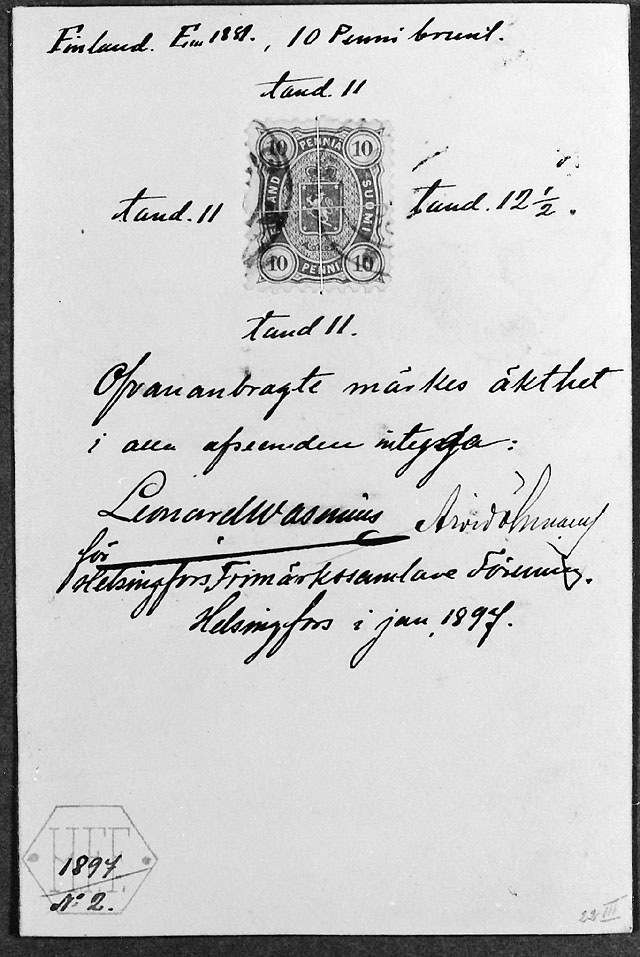 Finland. Em 1881., 10 Penni brunt.
tand. 11
10 PENNIÄ 10
tand. 11
FINLAND
SUOMI
tand. 12 1/2.
10 PENNI 10
tand 11.
Ofvananbragte märkes äkthet
i alla afseenden intyga:
Leonard Wasenius Arvid Öhmann
för
Helsingfors Frimärkssamlare Förening.
Helsingfors i jan. 1897.
HFF
1897
No 2.
22 III